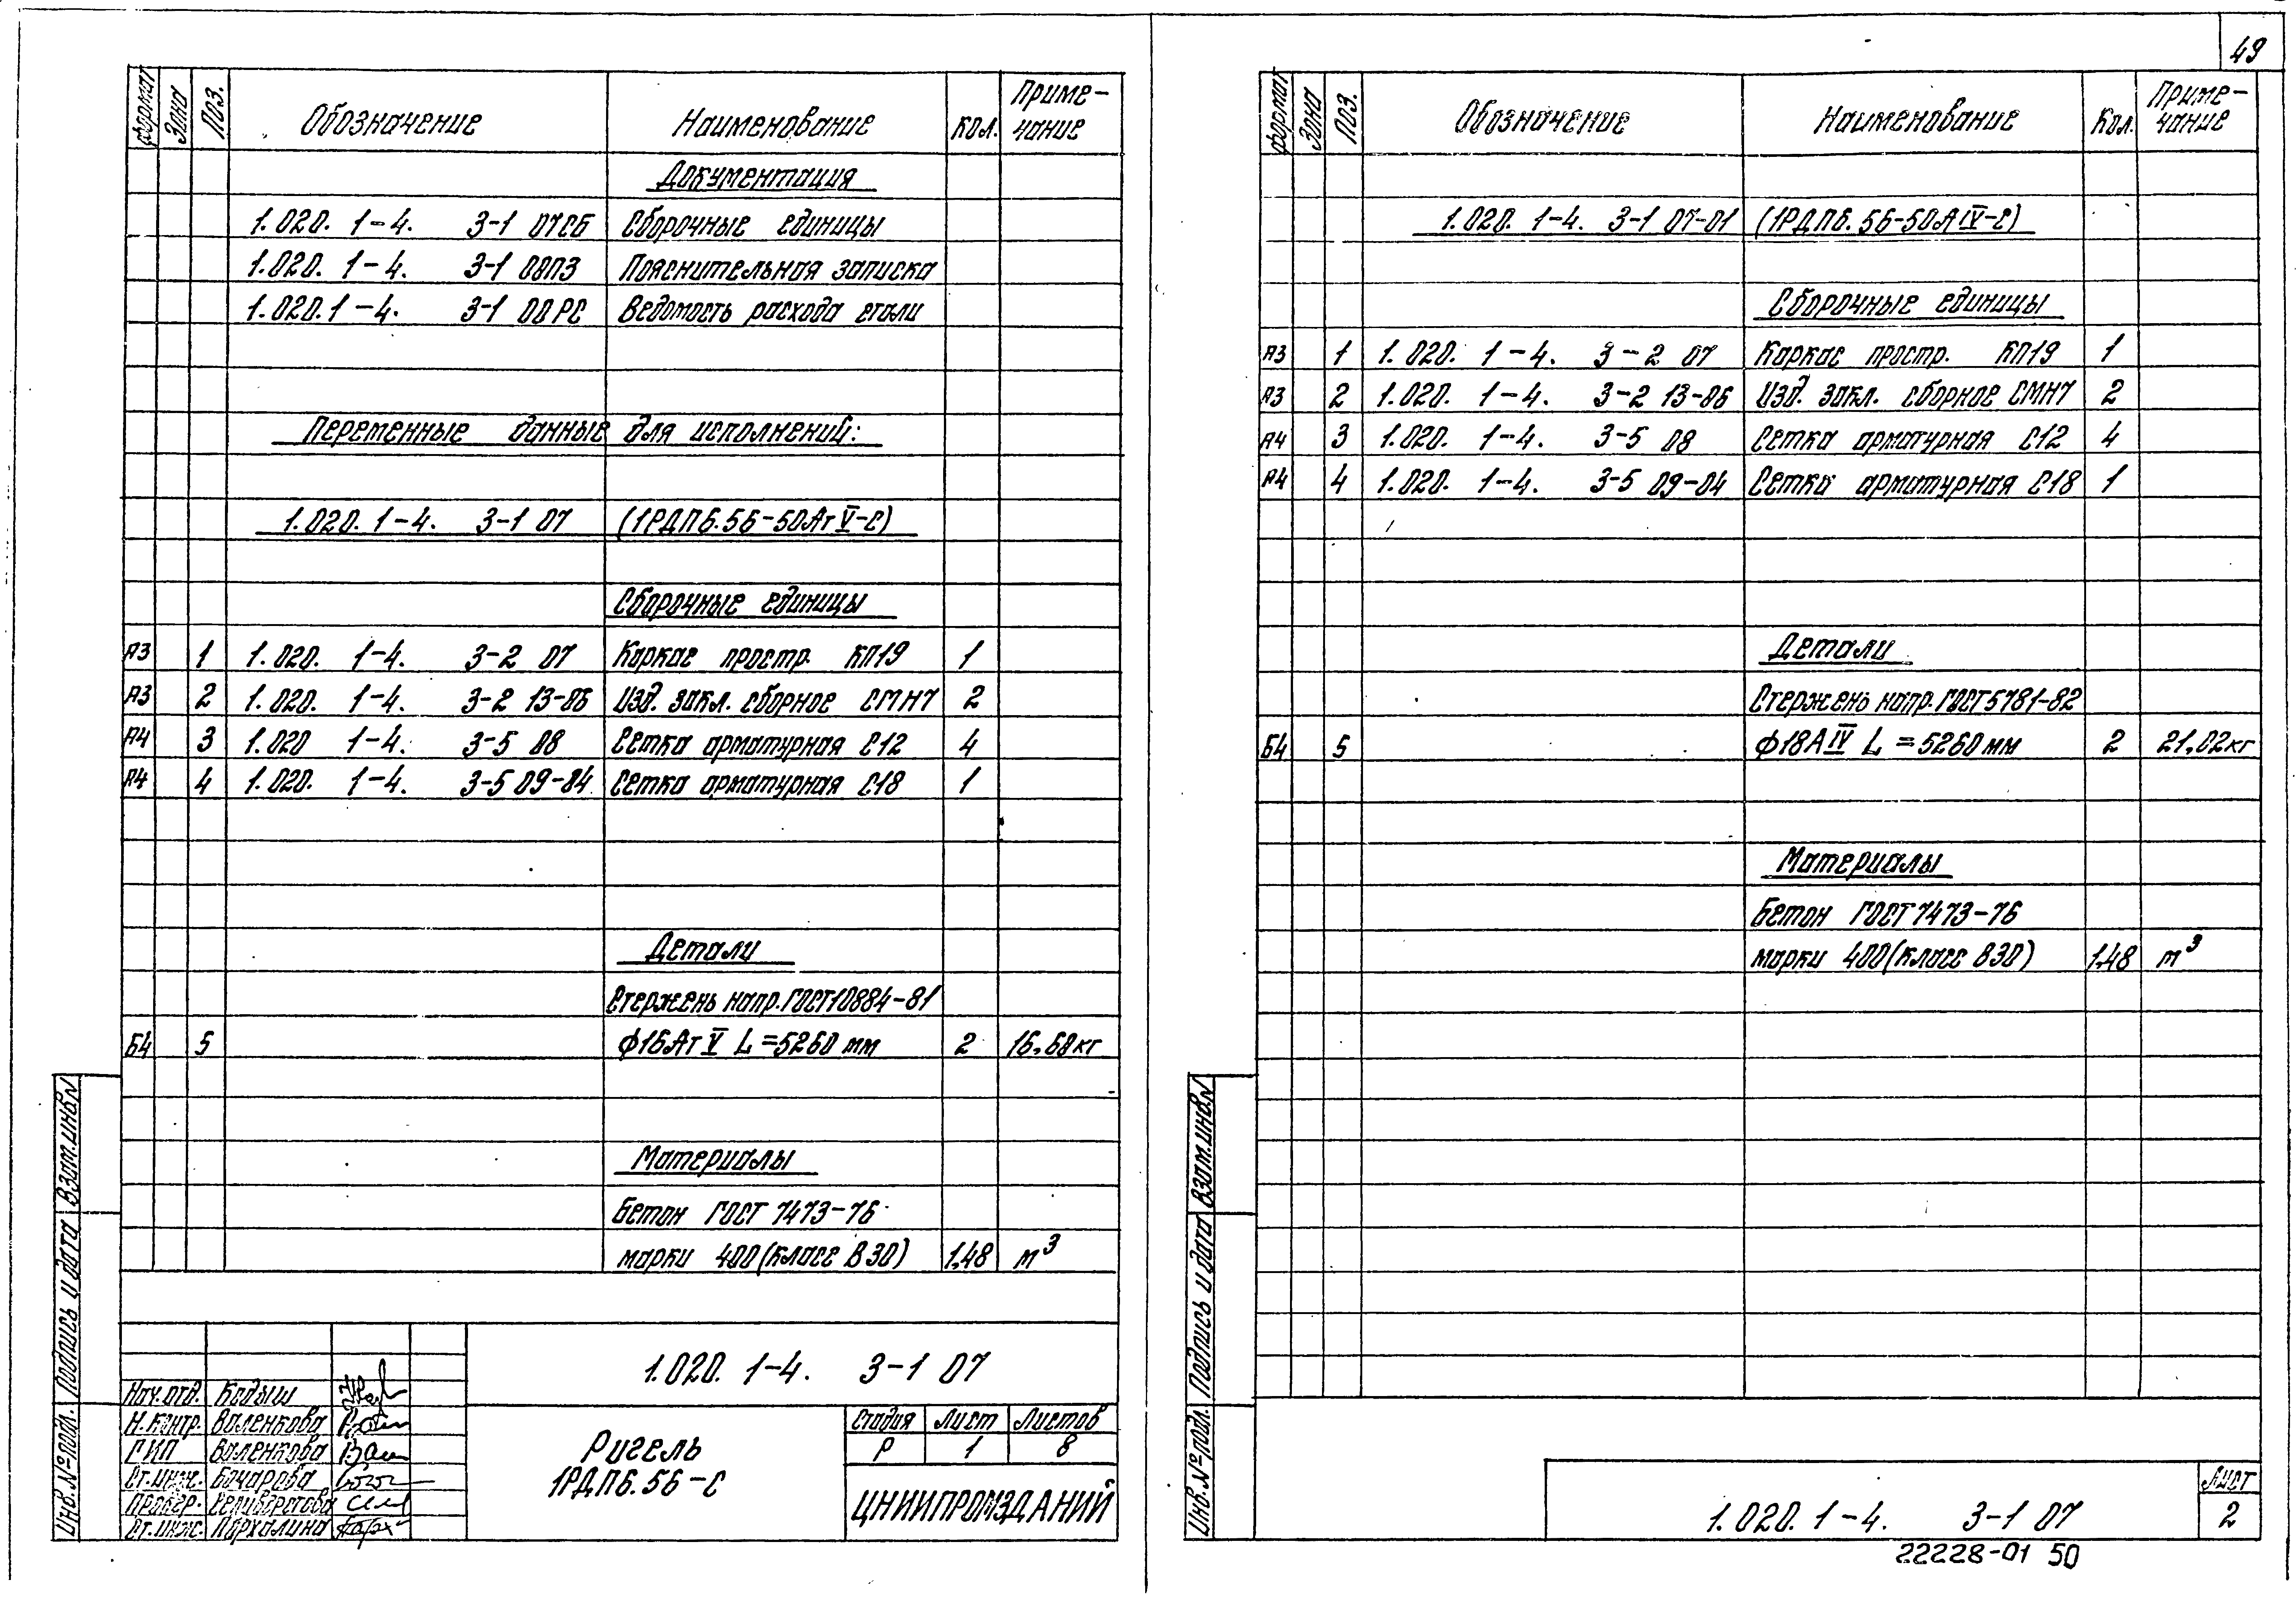 49
Формат Зона Поз. Обозначение Наименование Кол. Приме-чание
Документация
1.020. 1-4. 3-1 07СБ Сборочные единицы
1.020. 1-4. 3-1 00ПЗ Пояснительная записка
1.020.1-4. 3-1 00РС Ведомость расхода стали
Переменные данные для исполнений:
1.020. 1-4. 3-1 07 (1РДП6.56-50АтV-С)
Сборочные единицы
А3 1 1.020. 1-4. 3-2 07 Каркас простр. КП19 1
А3 2 1.020. 1-4. 3-2 13-06 Изд. закл. сборное СМН7 2
А4 3 1.020 1-4. 3-5 08 Сетка арматурная С12 4
А4 4 1.020. 1-4. 3-5 09-04 Сетка арматурная С18 1
Детали
Стержень напр.ГОСТ10884-81
Б4 5 ф16АтV L=5260 мм 2 16,68кг
Материалы
Бетон ГОСТ 7473-76
марки 400(класс В30) 1,48 м³
Инв.№подл. Подпись и дата Взам.инв.№
1.020. 1-4. 3-1 07
Нач.отд. Кодыш
Н.контр. Валенкова
ГИП Валенкова
Ст.инж. Бочарова
Провер. Селиверстова
Ст.инж. Пархалина
Ригель
1РДП6.56-С
Стадия Лист Листов
Р 1 8
ЦНИИПРОМЗДАНИЙ
Формат Зона Поз. Обозначение Наименование Кол. Приме-чание
1.020. 1-4. 3-1 07-01 (1РДП6.56-50АIV-С)
Сборочные единицы
А3 1 1.020. 1-4. 3-2 07 Каркас простр. КП19 1
А3 2 1.020. 1-4. 3-2 13-06 Изд. закл. сборное СМН7 2
А4 3 1.020. 1-4. 3-5 08 Сетка арматурная С12 4
А4 4 1.020. 1-4. 3-5 09-04 Сетка арматурная С18 1
Детали
Стержень напр.ГОСТ5781-82
Б4 5 ф18АIV L=5260мм 2 21,02кг
Материалы
Бетон ГОСТ7473-76
марки 400(класс В30) 1,48 м³
Инв.№подл. Подпись и дата Взам.инв.№
1.020. 1-4. 3-1 07
Лист
2
22228-01 50